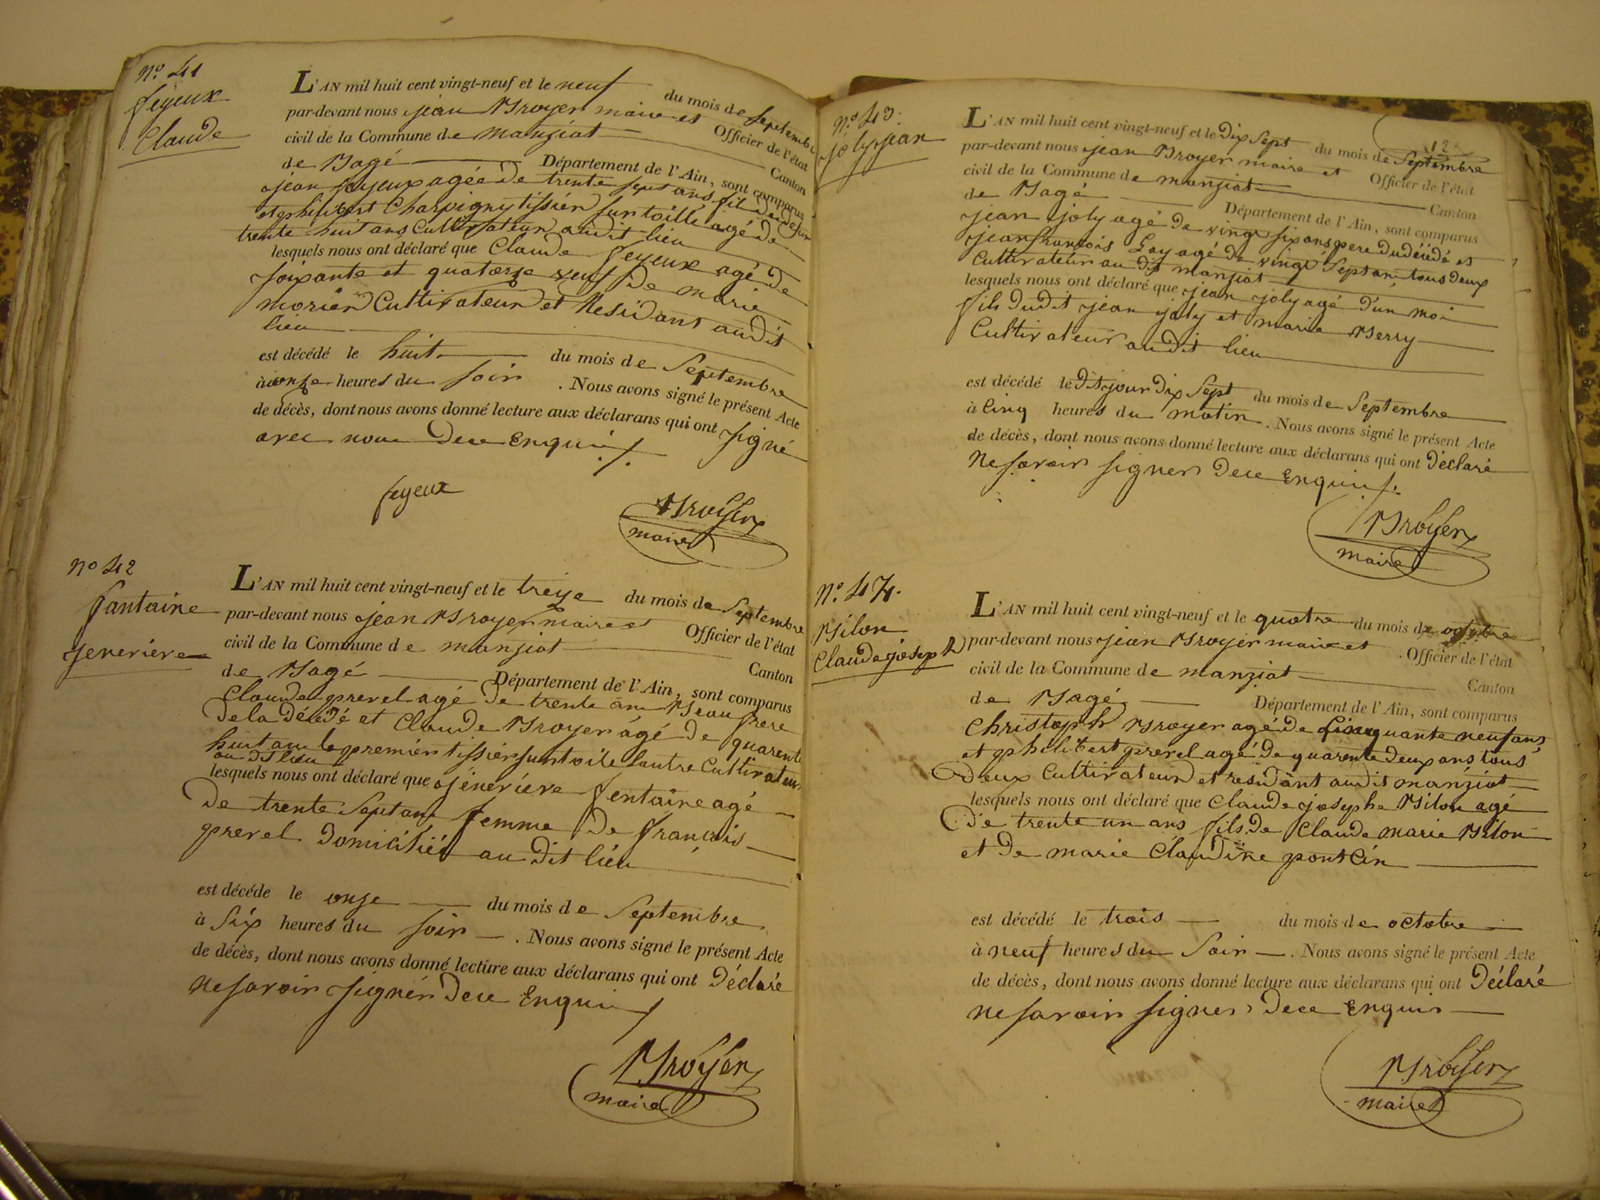 N° 41
feyeux
Claude
L'AN mil huit cent vingt-neuf et le neuf du mois de Septembre
par-devant nous jean Broyer maire et Officier de l'état
civil de la Commune de manziat Canton
de Bagé Département de l'Ain, sont comparus
jean feyeux agée de trente sept ans, fil du défun
et philibert Charvigny tissier sur toille agé de
trente huit ans Cultivateur audit lieu
lesquels nous ont déclaré que Claude feyeux agé de
Soixante et quatorze veuf De marie
morier Cultivateur et Résidant audit
lieu
est décédé le huit du mois de Septembre
à onze heures du Soir . Nous avons signé le présent Acte
de décès, dont nous avons donné lecture aux déclarans qui ont Signé
avec nous Dece Enqui
feyeux
Broyer
maire
N° 42
fantaine
jenevieve
L'AN mil huit cent vingt-neuf et le treize du mois de Septembre
par-devant nous jean Broyer maire et Officier de l'état
civil de la Commune de manziat Canton
de Bagé Département de l'Ain, sont comparus
Claude prevel agé De trente ans Beau frere
De la décédé et Claude Broyer agé De quarente
huit ans le premier tissier sur toile lautre Cultivateur
au dit lieu
lesquels nous ont déclaré que jenévriére fentaine agé
De trente Sept ans femme De françois
prevel Domicilié au Dit lieu
est décéde le onze du mois de Septembre
à Six heures du Soir . Nous avons signé le présent Acte
de décès, dont nous avons donné lecture aux déclarans qui ont Déclaré
ne Savoir Signér Dece Enqui
Broyer
maire
N° 43.
joly jean
12
L'AN mil huit cent vingt-neuf et le Dix Sept du mois de Septembre
par-devant nous jean Broyer maire et Officier de l'état
civil de la Commune de manziat Canton
de Bagé Département de l'Ain, sont comparus
jean joly agé De vingt six ans pere du décédé et
jean francois Loy agé de vingt Sept an, tous deux
Cultivateur au dit manziat
lesquels nous ont déclaré que jean joly agé D'un moi
fils Dudit jean joly et maria Berry
Cultivateur audit lieu
est décédé le Dit jour Dix Sept du mois de Septembre
à Cinq heures du matin . Nous avons signé le présent Acte
de décès, dont nous avons donné lecture aux déclarans qui ont Déclaré
ne Savoir Signer Dece Enqui
Broyer
maire
N° 44.
Bilon
Claude joseph
L'AN mil huit cent vingt-neuf et le quatre du mois de octobre
par-devant nous jean Broyer maire et Officier de l'état
civil de la Commune de manziat Canton
de Bagé Département de l'Ain, sont comparus
Christoph Broyer agé de Cinquante neuf ans
et philibert prerel agé De quarente Deux ans tous
Deux Cultivateur et residant audit manziat
lesquels nous ont déclaré que Claude josephe Bilon agé
De trente un ans fils De Claude marie Bilon
et De marie Claudine pontCin
est décédé le trois du mois de octobre
à neuf heures du Soir . Nous avons signé le présent Acte
de décès, dont nous avons donné lecture aux déclarans qui ont Déclaré
ne Savoir Signer Dece Enquis
Broyer
maire